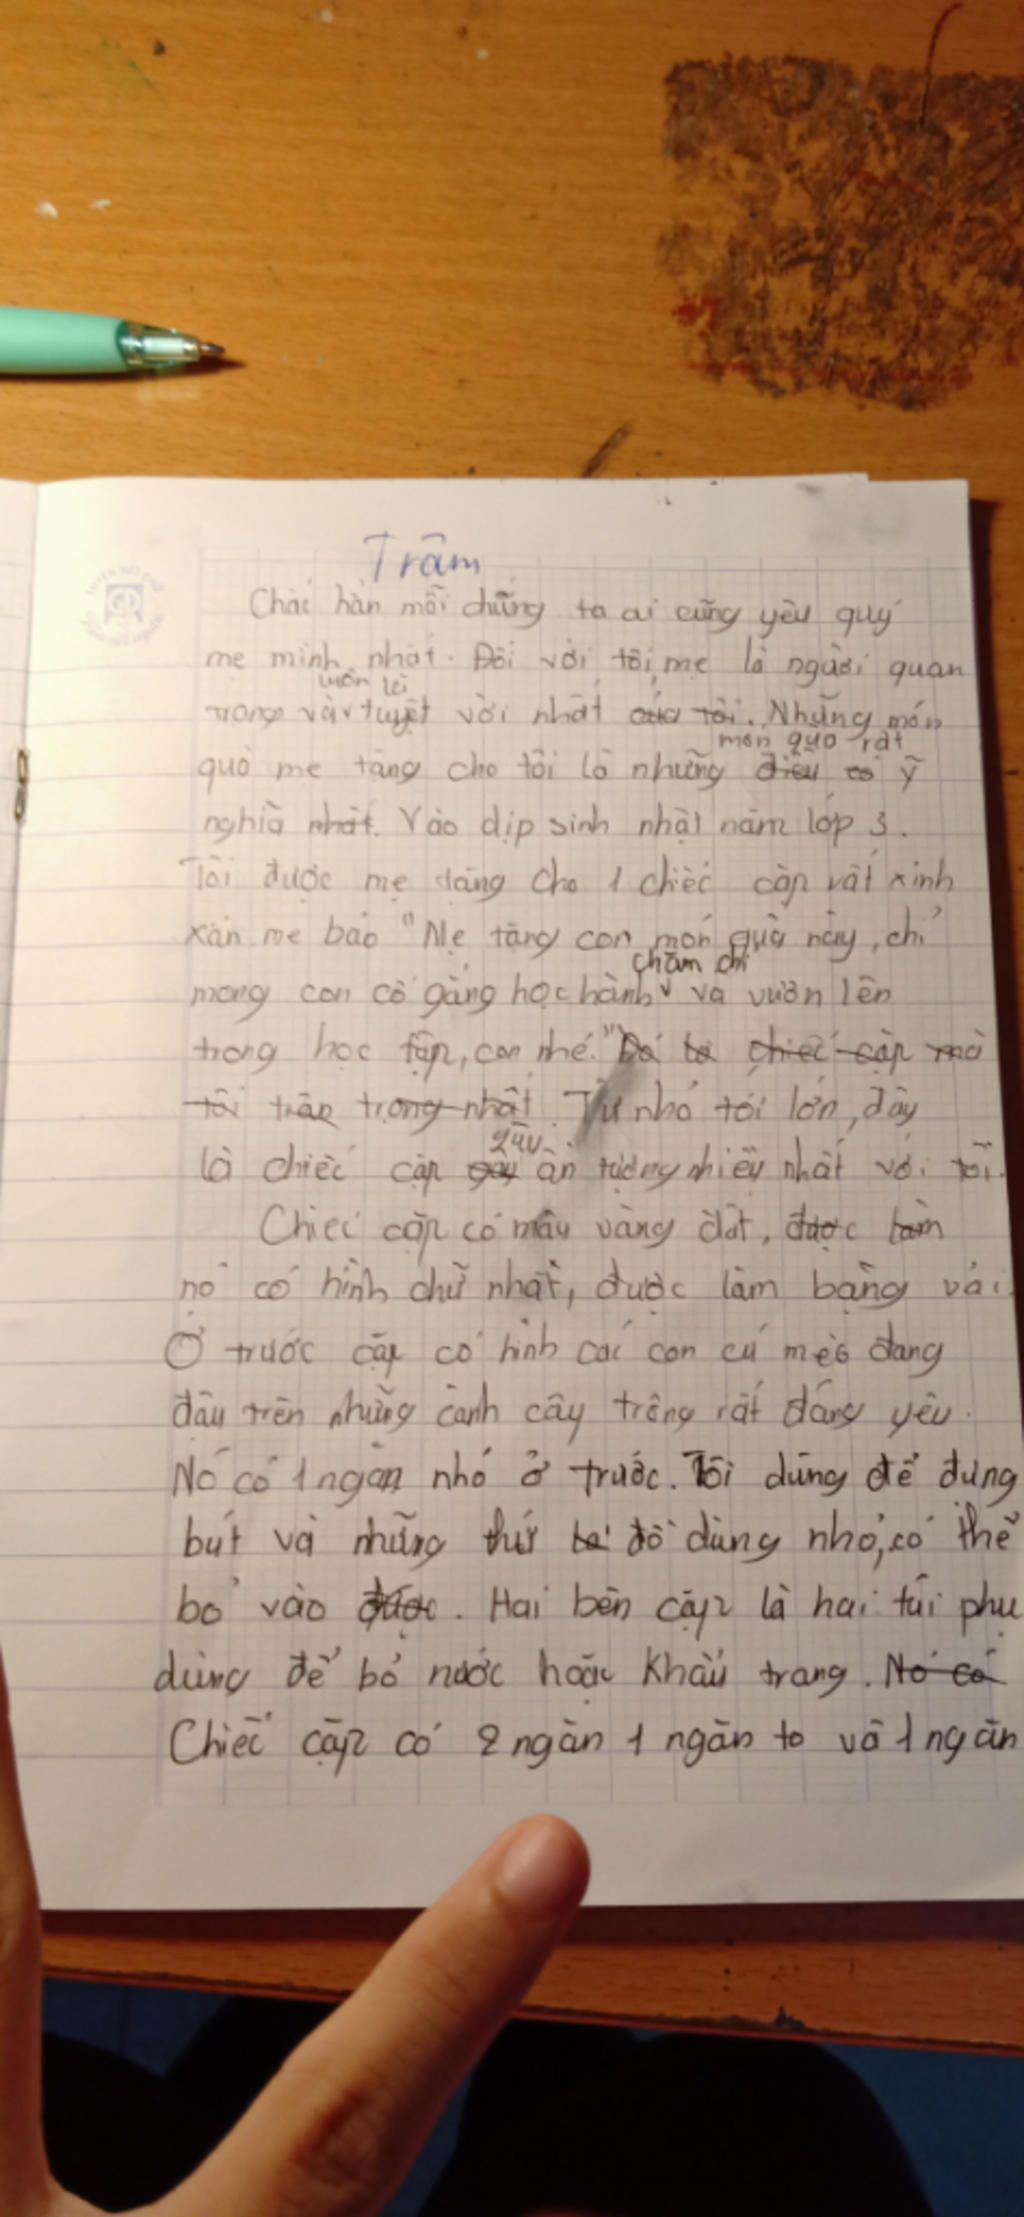 Trâm
Chắc hẳn mỗi chúng ta ai cũng yêu quý
mẹ mình nhất. Đối với tôi, mẹ là người quan
luôn là
trọng và tuyệt vời nhất của tôi. Những món
món quà rất
quà mẹ tặng cho tôi là những điều có ý
nghĩa nhất. Vào dịp sinh nhật năm lớp 3.
Tôi được mẹ tặng cho 1 chiếc cặp rất xinh
xắn mẹ bảo "Mẹ tặng con món quà này, chỉ
chăm chỉ
mong con cố gắng học hành và vươn lên
trong học tập, con nhé." Đó là chiếc cặp mà
tôi trân trọng nhất. Từ nhỏ tới lớn, đây
gây
là chiếc cặp gây ấn tượng nhiều nhất với tôi.
Chiếc cặp có mầu vàng đất, được làm
nó có hình chữ nhật, được làm bằng vải.
Ở trước cặp có hình các con cú mèo đang
đậu trên những cành cây trông rất đáng yêu.
Nó có 1 ngăn nhỏ ở trước. Tôi dùng để đựng
bút và những thứ đồ dùng nhỏ, có thể
bỏ vào được. Hai bên cặp là hai túi phụ
dùng để bỏ nước hoặc khẩu trang. Nó có
Chiếc cặp có 2 ngăn 1 ngăn to và 1 ngăn